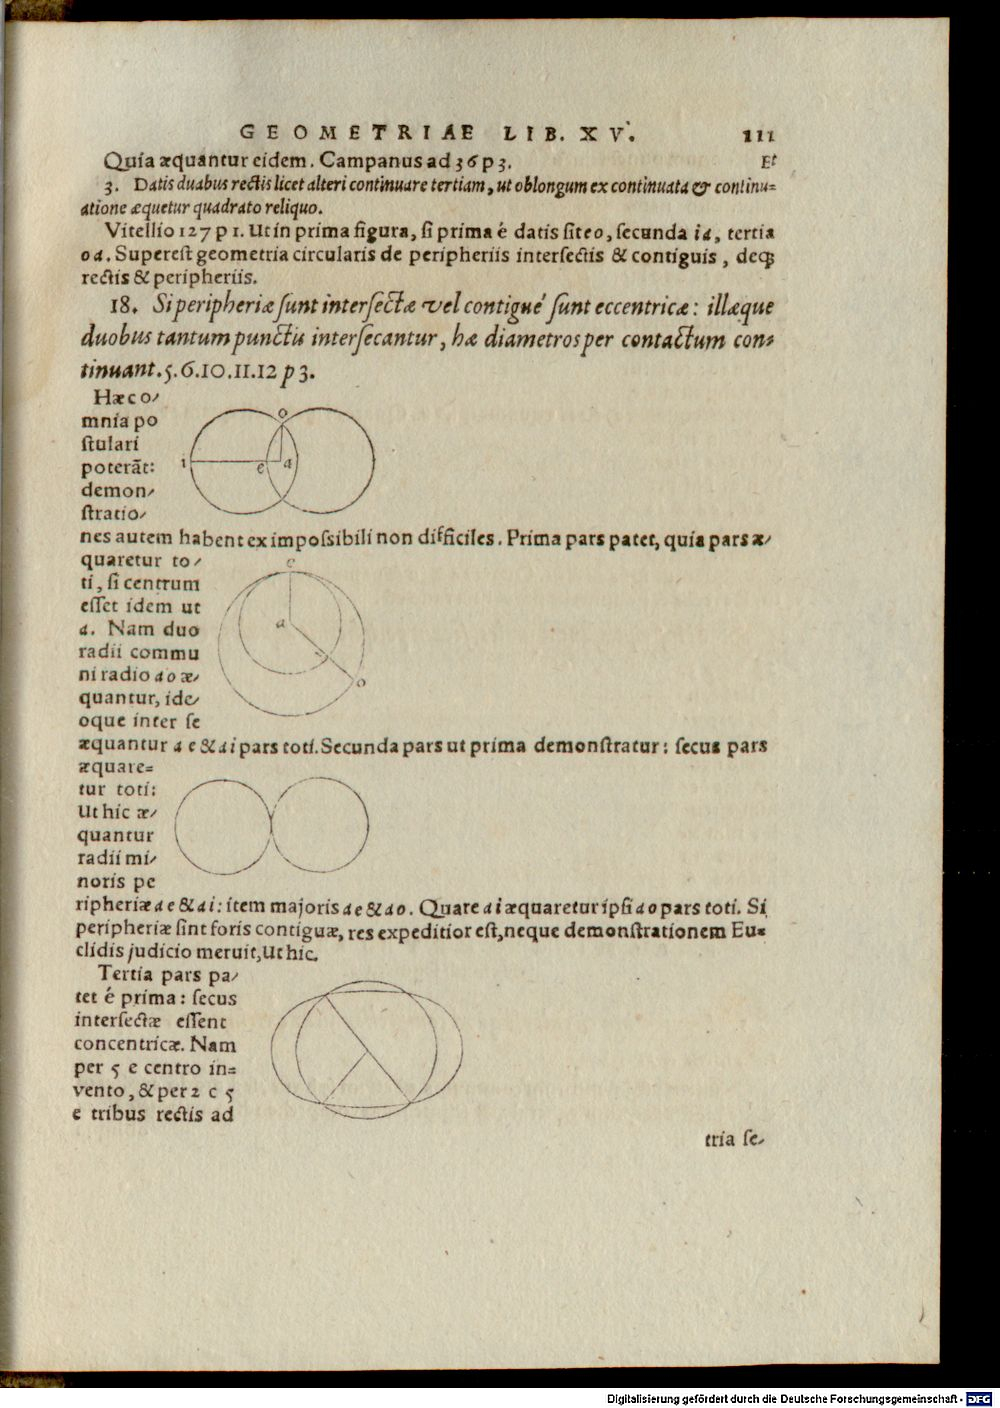 GEOMETRIAE LIB. XV. 111
Quia æquantur eidem. Campanus ad 36 p 3. Et
3. Datis duabus rectis licet alteri continuare tertiam, ut oblongum ex continuata & continu=
atione æquetur quadrato reliquo.
Vitellio 127 p 1. Ut in prima figura, si prima é datis sit eo, secunda ia, tertia
oa. Superest geometria circularis de peripheriis intersectis & contiguis, deq́;
rectis & peripheriis.
18. Si peripheriæ sunt intersectæ vel contiguæ sunt eccentricæ: illæque
duobus tantum punctis intersecantur, hæ diametros per contactum con=
tinuant. 5. 6. 10. 11. 12 p 3.
Hæc o-
mnia po
stulari
poterāt:
demon-
stratio-
o
i e a
nes autem habent ex impossibili non difficiles. Prima pars patet, quia pars æ-
quaretur to-
ti, si centrum
esset idem ut
a. Nam duo
radii commu
ni radio ao æ-
quantur, ide-
oque inter se
e
a
i
o
æquantur ae & ai pars toti. Secunda pars ut prima demonstratur: secus pars
æquare=
tur toti:
Ut hic æ-
quantur
radii mi-
noris pe
ripheriæ ae & ai: item majoris ae & ao. Quare ai æquaretur ipsi ao pars toti. Si
peripheriæ sint foris contiguæ, res expeditior est, neque demonstrationem Eu=
clidis judicio meruit, Ut hic.
Tertia pars pa-
tet é prima: secus
intersectæ essent
concentricæ. Nam
per 5 e centro in=
vento, & per 2 c 5
e tribus rectis ad
tria se-
Digitalisierung gefördert durch die Deutsche Forschungsgemeinschaft - DFG